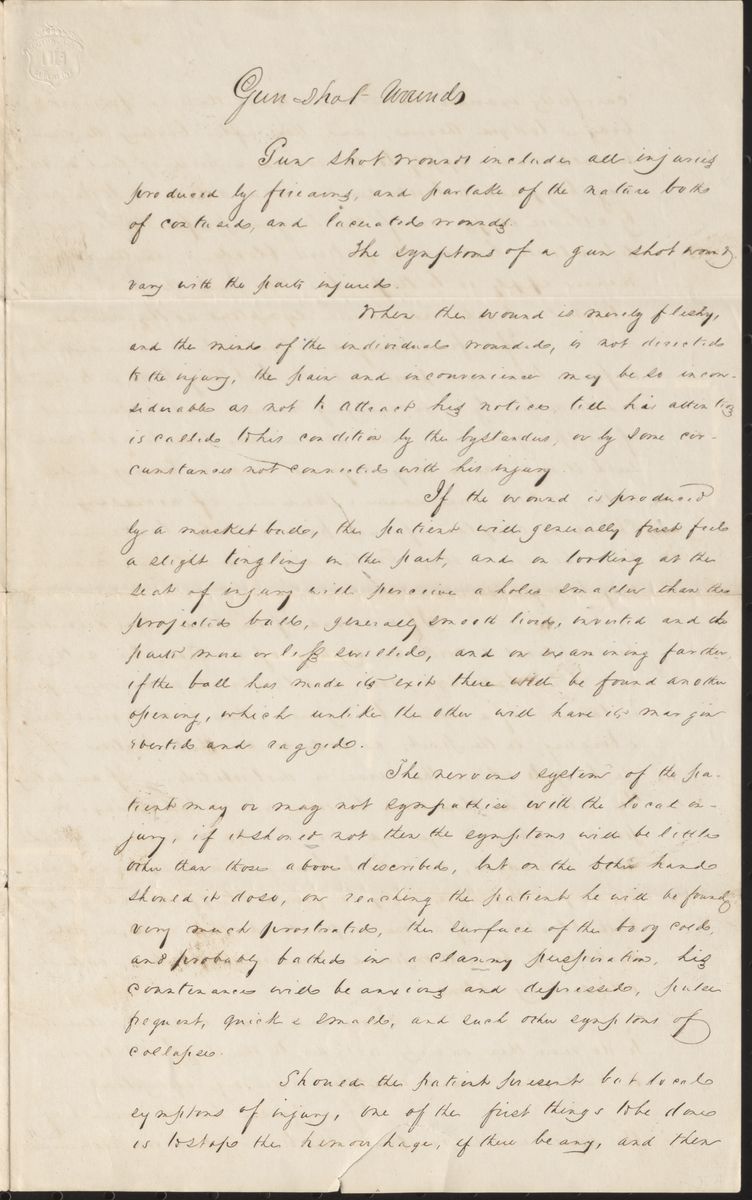 Gun-shot Wounds
Gun shot wounds includes all injuries
produced by firearms, and partake of the nature both
of contused, and lacerated wounds.
The symptoms of a gun shot wound
vary with the parts injured.
When the wound is merely fleshy,
and the mind of the individual wounded, is not directed
to the injury, the pain and inconvenience may be so incon-
siderable as not to attract his notice, till his attention
is called to his condition by the bystanders, or by some cir-
cumstances not connected with his injury.
If the wound is produced
by a musket ball, the patient will generally first feel
a slight tingling in the part, and on looking at the
seat of injury will perceive a hole smaller than the
projected ball, generally smooth lived, inverted and the
parts more or less swelled, and on examining farther
if the ball has made its exit there will be found another
opening, which unlike the other will have its margin
everted and ragged.
The nervous system of the pa-
tient may or may not sympathise with the local in-
jury, if it should not then the symptoms will be little
other than those above described, but on the other hand
should it do so, on reaching the patient he will be found
very much prostrated, the surface of the body cold,
and probably bathed in a clammy perspiration, his
countenance will be anxious and depressed, pulse
frequent, quick & small, and such other symptoms of
collapse.
Should the patient present but local
symptoms of injury, one of the first things to be done
is to stop the hemorrhage, if there be any, and then